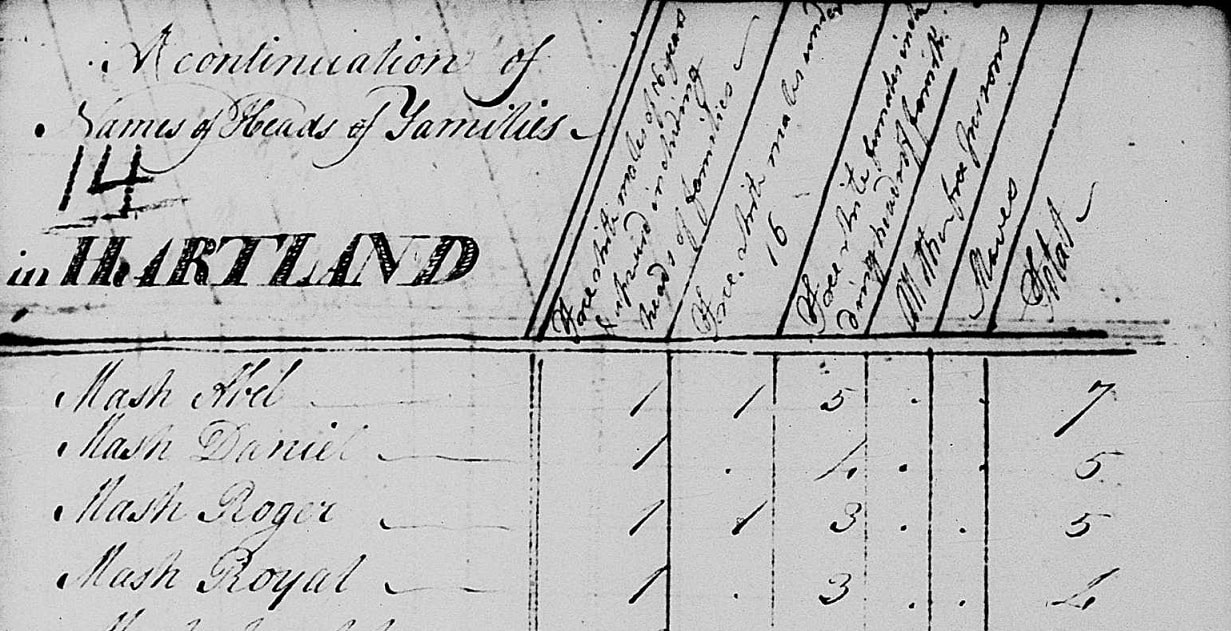 A continuation of
Names of Heads of Families
14
in HARTLAND
Free white males of 16 years
& upward including
heads of families
Free white males under
16
Free white females inclu
ding heads of famili.
All other free persons
Slaves
Total
Mash Abel 1 1 5 . . 7
Mash Daniel 1 . 4 . . 5
Mash Roger 1 1 3 . . 5
Mash Royal 1 . 3 . . 4